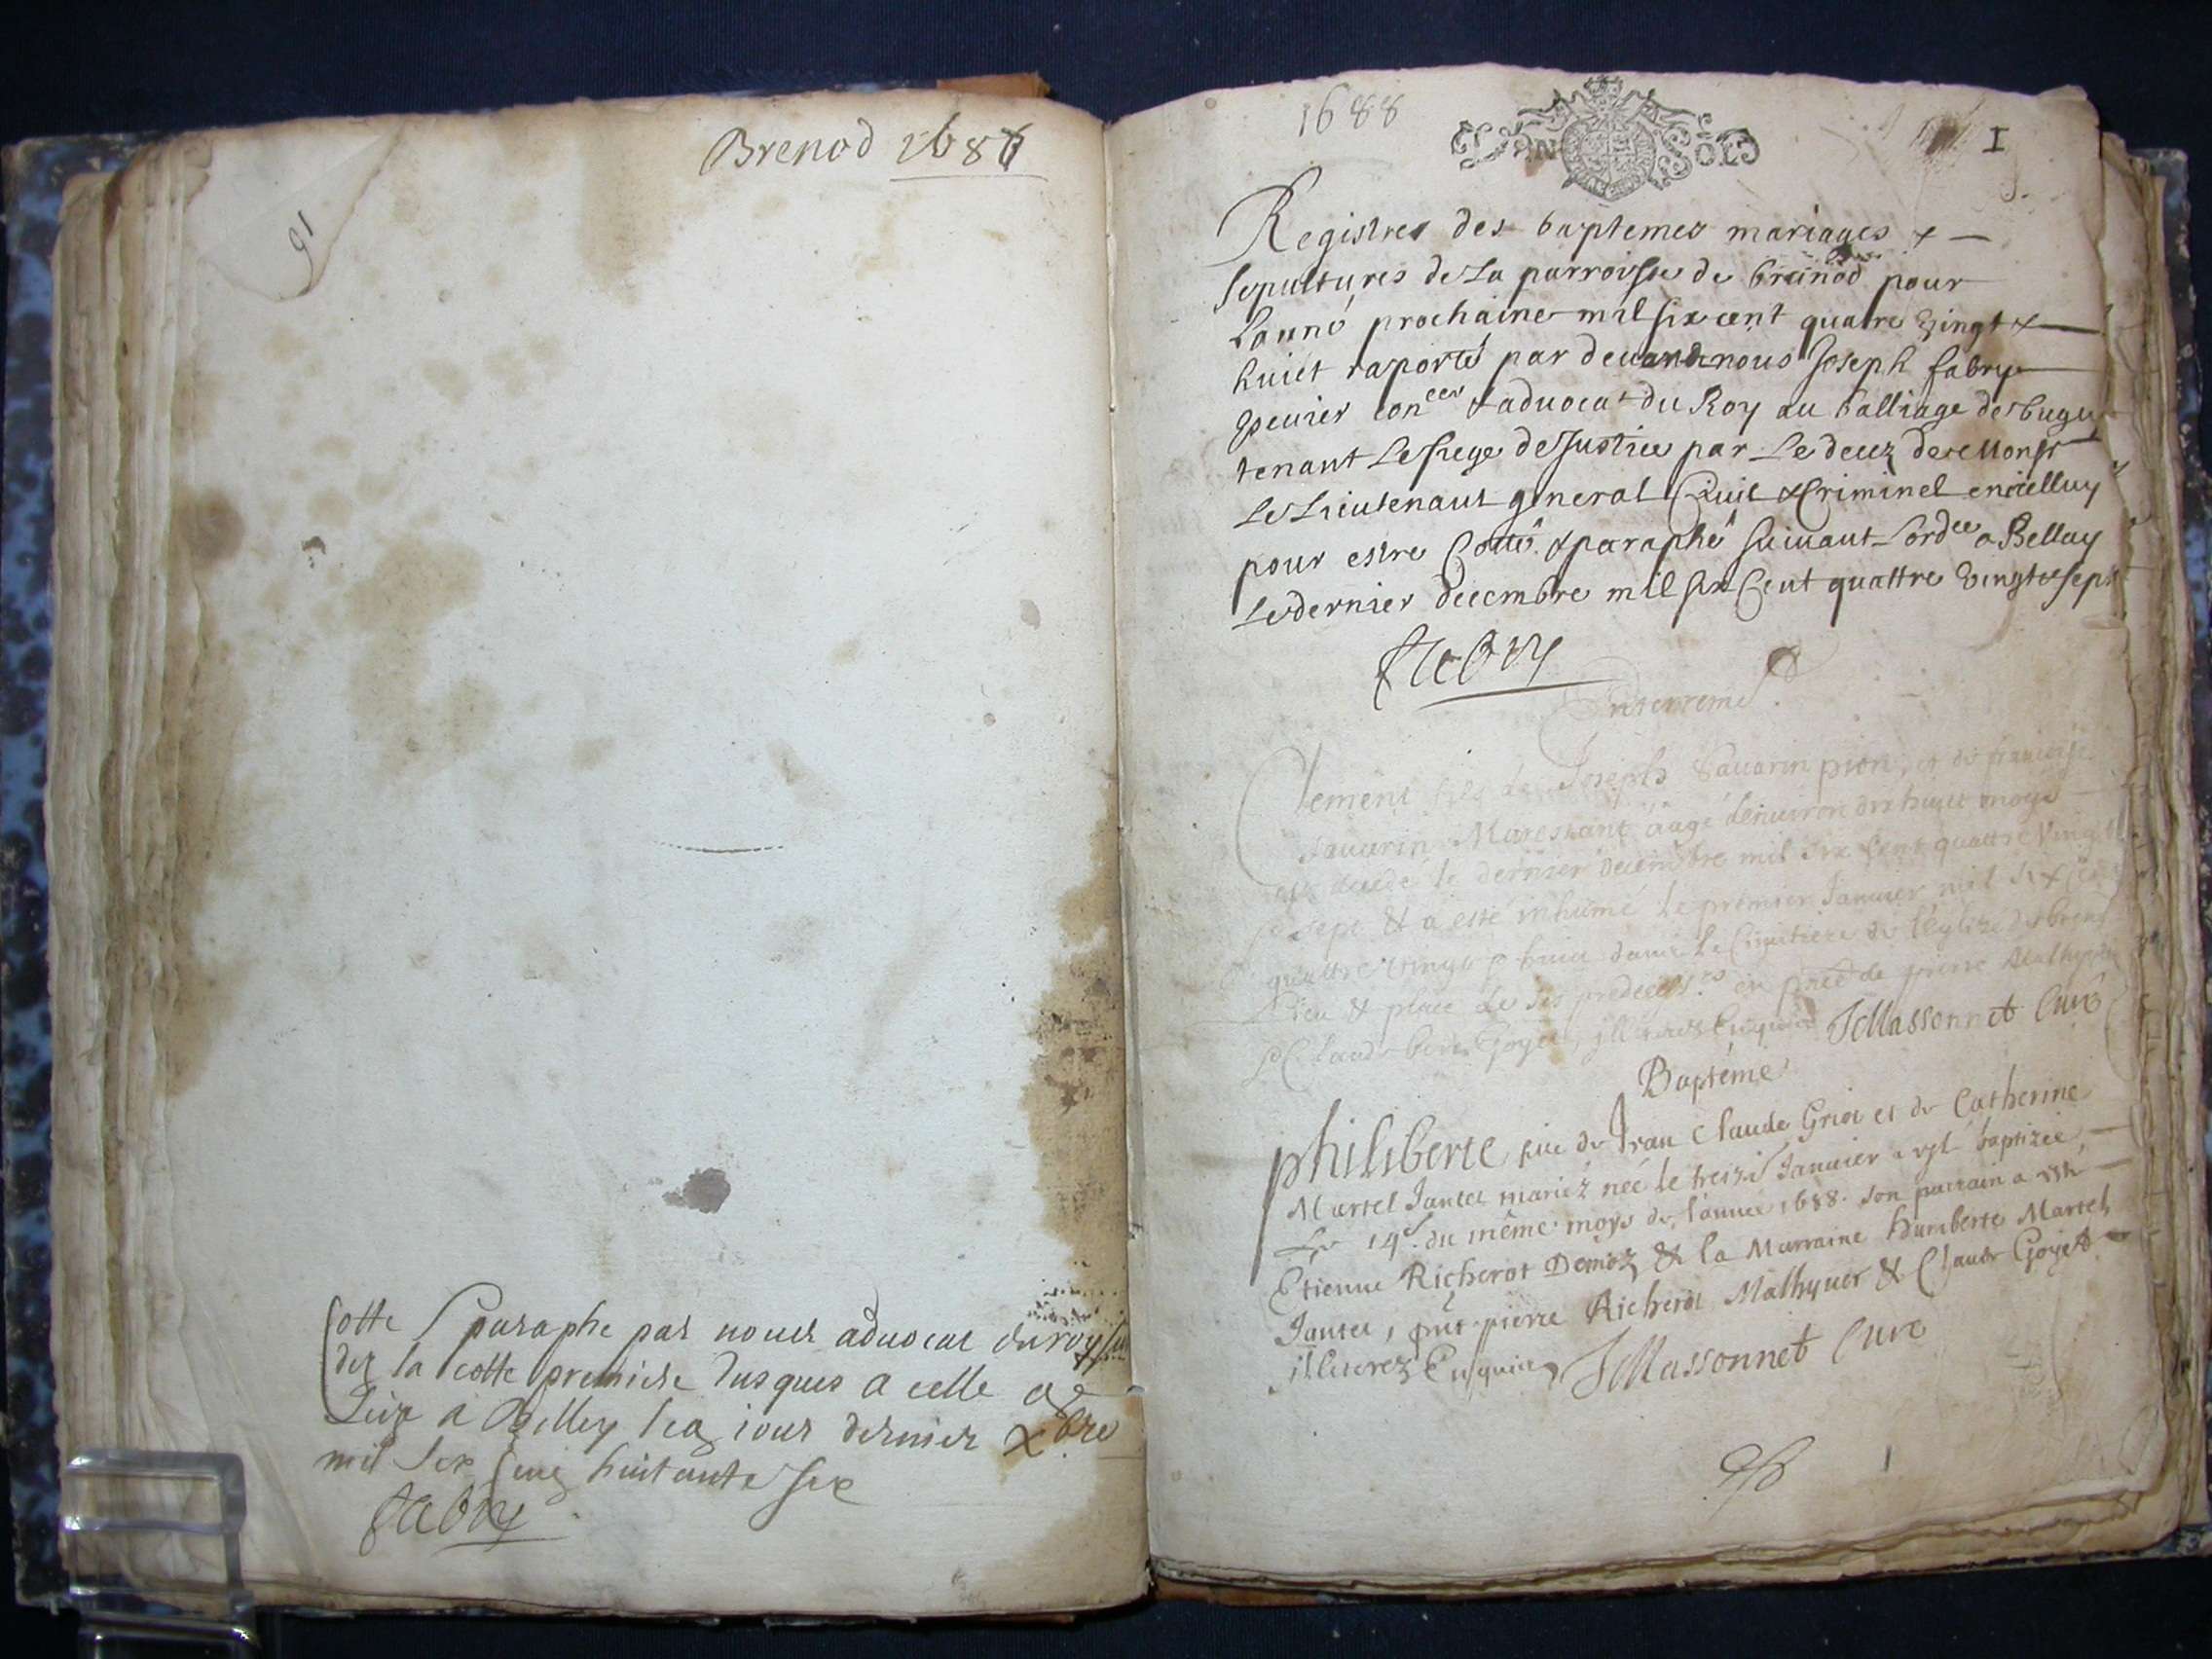 Brenod 1687
91
Cotté & paraphé par nous advocat du roy
dez la cotte premiere Jusques a celle
Seize a Belley le jour dernier Xbre
mil six cent huitante six
Fabry
1688
I
UN SOL
Registres des baptemes mariages &
sepultures de La parroisse de breinod pour
L'anné prochaine mil six cent quatre vingt &
huict raporté par devandt nous Joseph fabry
Escuier con.er & advocat du Roy au balliage de bugey
tenant Le siege de Justice par Le decez de Monsr
Le Lieutenant general Civil & Criminel en icelluy
pour estre Cotté & paraphé suivant L'ordce a Belley
Le dernier decembre mil six Cent quattre vingt & sept
Fabry
Enterremt
Clement fils de Joseph Savarin pion, et de francoise
Savarin Mareschant aagé d'environ dix huict moys
est decedé le dernier decembre mil six Cent quattre vingt
& sept & a esté inhumé le premier Janvier mil six Cent
quattre vingt & huict dans le Cimitiere de l'Eglize de breno
lieu & place de ses predecessrs en prñce de pierre Mathyuer
& Claude Goyet, illiterez Enquis JCMassonnet Curé
Bapteme
Philiberte fille de Jean Claude Griot et de Catherine
Martel Jantet mariéz née le treizé Janvier a esté baptizée
Le 14e du même moys de l'année 1688. son parrain a esté
Etienne Richerot Demoz & la Marraine humberte Martel
Jantet, prñt pierre Richerot Mathyuer & Claude Goyet
illiterez Enquis JCMassonnet Curé
1